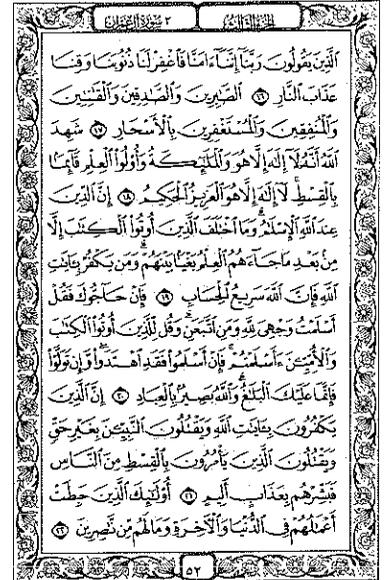 الجزء الثالث ٣ سورة آل عمران
ٱلَّذِينَ يَقُولُونَ رَبَّنَآ إِنَّنَآ ءَامَنَّا فَٱغْفِرْ لَنَا ذُنُوبَنَا وَقِنَا
عَذَابَ ٱلنَّارِ ١٦ ٱلصَّٰبِرِينَ وَٱلصَّٰدِقِينَ وَٱلْقَٰنِتِينَ
وَٱلْمُنفِقِينَ وَٱلْمُسْتَغْفِرِينَ بِٱلْأَسْحَارِ ١٧ شَهِدَ
ٱللَّهُ أَنَّهُۥ لَآ إِلَٰهَ إِلَّا هُوَ وَٱلْمَلَٰٓئِكَةُ وَأُو۟لُوا۟ ٱلْعِلْمِ قَآئِمًۢا
بِٱلْقِسْطِ ۚ لَآ إِلَٰهَ إِلَّا هُوَ ٱلْعَزِيزُ ٱلْحَكِيمُ ١٨ إِنَّ ٱلدِّينَ
عِندَ ٱللَّهِ ٱلْإِسْلَٰمُ ۗ وَمَا ٱخْتَلَفَ ٱلَّذِينَ أُوتُوا۟ ٱلْكِتَٰبَ إِلَّا
مِنۢ بَعْدِ مَا جَآءَهُمُ ٱلْعِلْمُ بَغْيًۢا بَيْنَهُمْ ۗ وَمَن يَكْفُرْ بِـَٔايَٰتِ
ٱللَّهِ فَإِنَّ ٱللَّهَ سَرِيعُ ٱلْحِسَابِ ١٩ فَإِنْ حَآجُّوكَ فَقُلْ
أَسْلَمْتُ وَجْهِىَ لِلَّهِ وَمَنِ ٱتَّبَعَنِ ۗ وَقُل لِّلَّذِينَ أُوتُوا۟ ٱلْكِتَٰبَ
وَٱلْأُمِّيِّـۧنَ ءَأَسْلَمْتُمْ ۚ فَإِنْ أَسْلَمُوا۟ فَقَدِ ٱهْتَدَوا۟ ۖ وَّإِن تَوَلَّوْا۟
فَإِنَّمَا عَلَيْكَ ٱلْبَلَٰغُ ۗ وَٱللَّهُ بَصِيرٌۢ بِٱلْعِبَادِ ٢٠ إِنَّ ٱلَّذِينَ
يَكْفُرُونَ بِـَٔايَٰتِ ٱللَّهِ وَيَقْتُلُونَ ٱلنَّبِيِّـۧنَ بِغَيْرِ حَقٍّ
وَيَقْتُلُونَ ٱلَّذِينَ يَأْمُرُونَ بِٱلْقِسْطِ مِنَ ٱلنَّاسِ
فَبَشِّرْهُم بِعَذَابٍ أَلِيمٍ ٢١ أُو۟لَٰٓئِكَ ٱلَّذِينَ حَبِطَتْ
أَعْمَٰلُهُمْ فِى ٱلدُّنْيَا وَٱلْـَٔاخِرَةِ وَمَا لَهُم مِّن نَّٰصِرِينَ ٢٢
٥٢